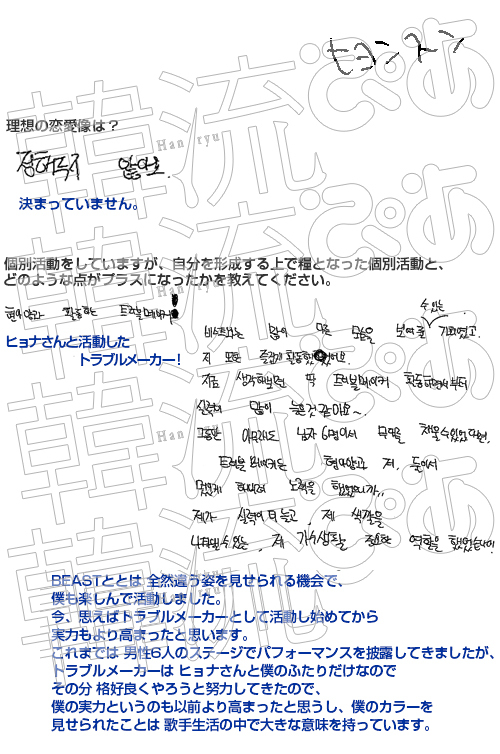 ヒョンスン
理想の恋愛像は？
정해두지 않아요.
決まっていません。
個別活動をしていますが、自分を形成する上で糧となった個別活動と、
どのような点がプラスになったかを教えてください。
현아양과 활동한 트러블메이커!
ヒョナさんと活動した
トラブルメーカー！
비스트와는 많이 다른 모습을 보여줄 수있는 기회였고
저 또한 즐겁게 활동했었어요
지금 생각해보면 딱 트러블메이커 활동하면서부터
실력이 많이 늘은것 같아요~.
그동안 이무대도 남자 6명이서 무대를 채울수있었다면,
트러블메이커는 현아양과 저, 둘이서
멋있게 하려고 노력을 했었으니까,
제가 실력이 더 늘고, 제 색깔을
나타낼수있는, 제 가수생활 중요한 역할을 했었습니다
BEASTととは 全然違う姿を見せられる機会で、
僕も楽しんで活動しました。
今、思えばトラブルメーカーとして活動し始めてから
実力もより高まったと思います。
これまでは 男性6人のステージでパフォーマンスを披露してきましたが、
トラブルメーカーは ヒョナさんと僕のふたりだけなので
その分 格好良くやろうと努力してきたので、
僕の実力というのも以前より高まったと思うし、僕のカラーを
見せられたことは 歌手生活の中で大きな意味を持っています。
韓流ぴあ
Han ryu